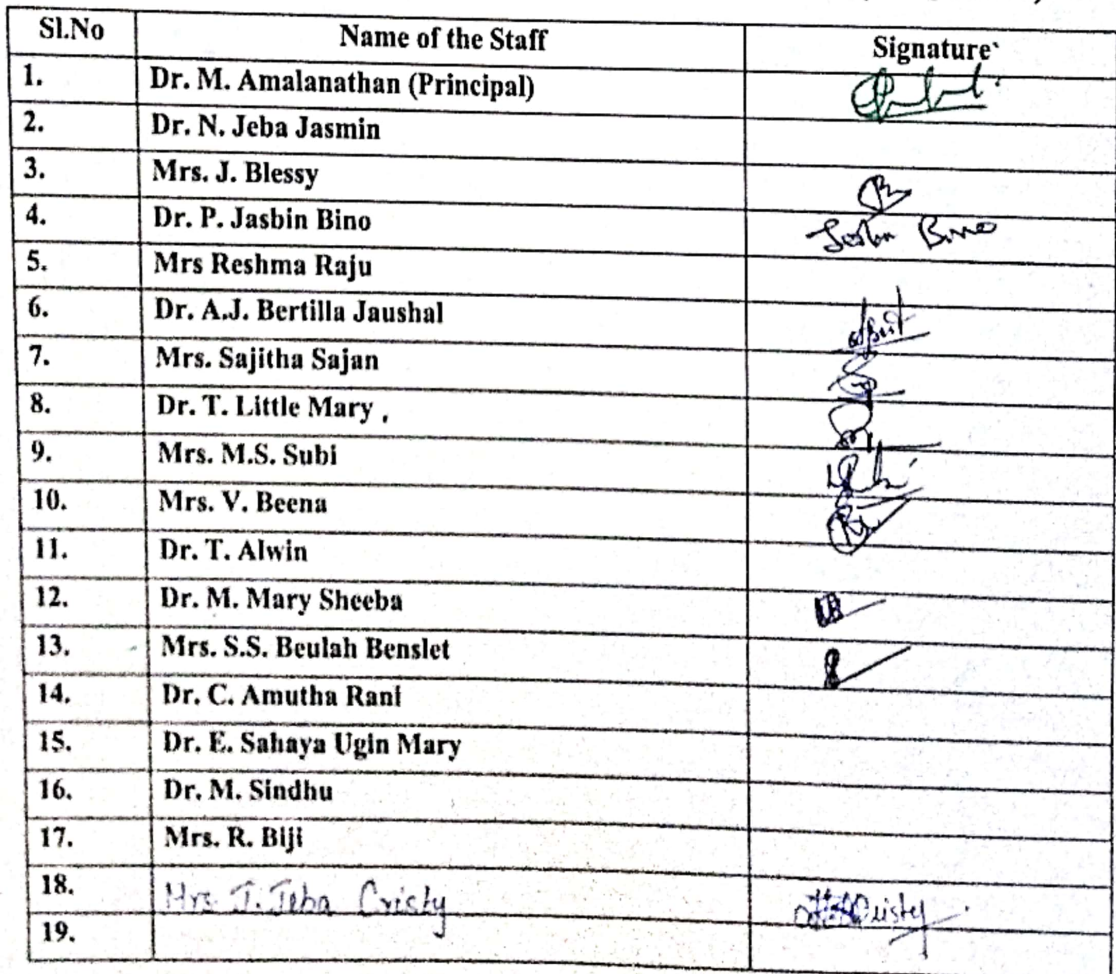 Sl.No Name of the Staff Signature
1. Dr. M. Amalanathan (Principal)
2. Dr. N. Jeba Jasmin
3. Mrs. J. Blessy
4. Dr. P. Jasbin Bino Jasbin Bino
5. Mrs Reshma Raju
6. Dr. A.J. Bertilla Jaushal
7. Mrs. Sajitha Sajan
8. Dr. T. Little Mary .
9. Mrs. M.S. Subi
10. Mrs. V. Beena
11. Dr. T. Alwin
12. Dr. M. Mary Sheeba
13. Mrs. S.S. Beulah Benslet
14. Dr. C. Amutha Rani
15. Dr. E. Sahaya Ugin Mary
16. Dr. M. Sindhu
17. Mrs. R. Biji
18. Mrs J. Jeba Cristy
19.